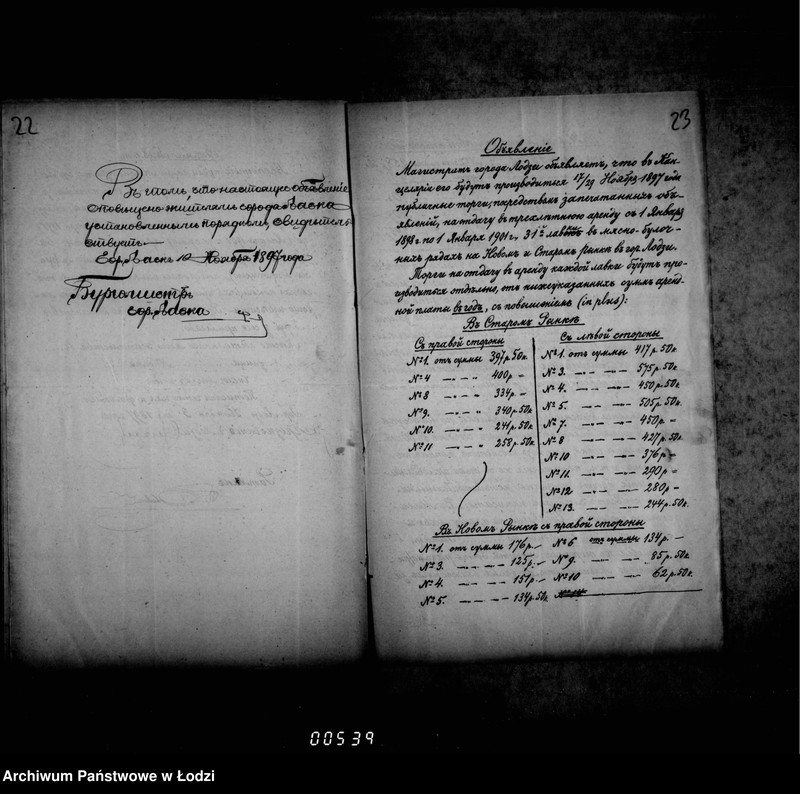 22
Въ томъ, что настоящее объявленіе
оповѣщено жителямъ города Ласка
установленнымъ порядкомъ, свидѣтель-
ствуетъ.
Гор. Ласкъ 10 Ноября 1897 года
Бургомистръ
гор. Ласка
23
Объявленіе
Магистратъ города Лодзи объявляетъ, что въ Кан-
целяріи его будутъ производиться 17/29 Ноября 1897 года
публичные торги, посредствомъ запечатанныхъ объ-
явленій, на отдачу въ трехлѣтнюю аренду съ 1 Января
1898 г. по 1 Января 1901 г., 31ой лавокъ въ мясно-булоч-
ныхъ рядахъ на Новомъ и Старомъ Рынкѣ въ гор. Лодзи.
Торги на отдачу въ аренду каждой лавки будутъ про-
изводиться отдѣльно, отъ нижеуказанныхъ суммъ аренд-
ной платы въ годъ, съ повышеніемъ (in plus):
Въ Старомъ Рынкѣ
Съ правой стороны
№ 1. отъ суммы 397 р. 50 к.
№ 4 — „ — „ 400 р =
№ 8 — „ — „ 334 р —
№ 9. — „ — „ 340 р. 50 к.
№ 10. — „ — „ 241 р. 50 к.
№ 11 — „ — „ 258 р. 50 к.
Съ лѣвой стороны
№ 1. отъ суммы 417 р. 50 к.
№ 3. — „ — „ — 575 р. 50 к.
№ 4. — „ — „ — 450 р. 50 к.
№ 5. — „ — „ — 505 р. 50 к.
№ 7. — „ — „ — 450 р. =
№ 8 — „ — „ — 427 р. 50 к.
№ 10 — „ — „ — 376 р =
№ 11. — „ — „ — 290 р =
№ 12 — „ — „ — 280 р =
№ 13. — „ — „ — 244 р. 50 к.
Въ Новомъ Рынкѣ съ правой стороны
№ 1. отъ суммы 176 р. —
№ 3. — „ — „ — 125 р. —
№ 4. — „ — „ — 151 р. —
№ 5. — „ — „ — 134 р. 50 к.
№ 6 отъ суммы 134 р. —
№ 9. — „ — „ — 85 р. 50 к.
№ 10 — „ — „ — 62 р. 50 к.
00539
Archiwum Państwowe w Łodzi